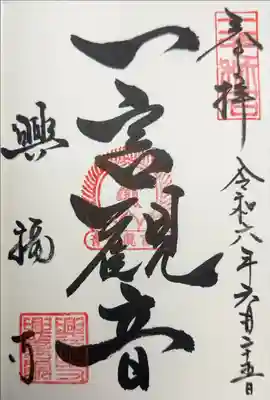 奉拝
令和六年六月二十五日
一言觀音
興福寺